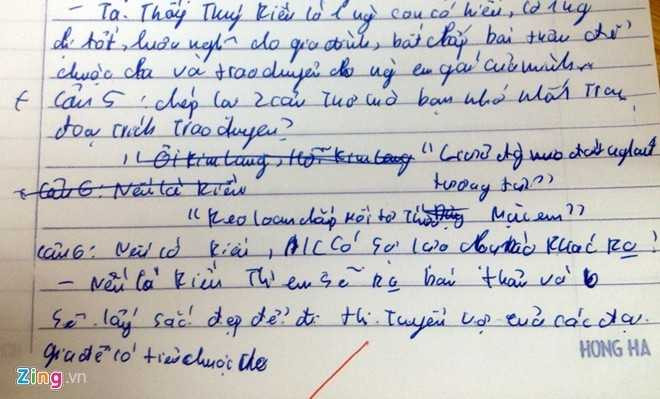 - Ta. Thấy Thuý Kiều là 1 ngừ con có hiếu, là 1 ng
đi tốt, luôn nghĩ cho gia đình, bất chấp bán thân để
chuộc cha và trao duyên cho ng em gái của mình.
Câu 5 : chép lại 2 câu Thơ mà bạn nhớ nhất Trong
đoạn trích Trao duyên?
"Ôi Kim Lang, Hỡi Kim Lang "Giữa đg đứt
tương tư"
Câu 6: Nếu là Kiều
"Keo loan chắp mối tơ Thừa Mặc em"
Câu 6: Nếu là Kiều, A/C có sự lựa chọn nào khác ko?
- Nếu là Kiều Thì em sẽ ko bán thân và
sẽ lấy sắc đẹp để đi thi tuyển vợ của các đại
gia để có tiền chuộc cha
HONG HA
Zing.vn